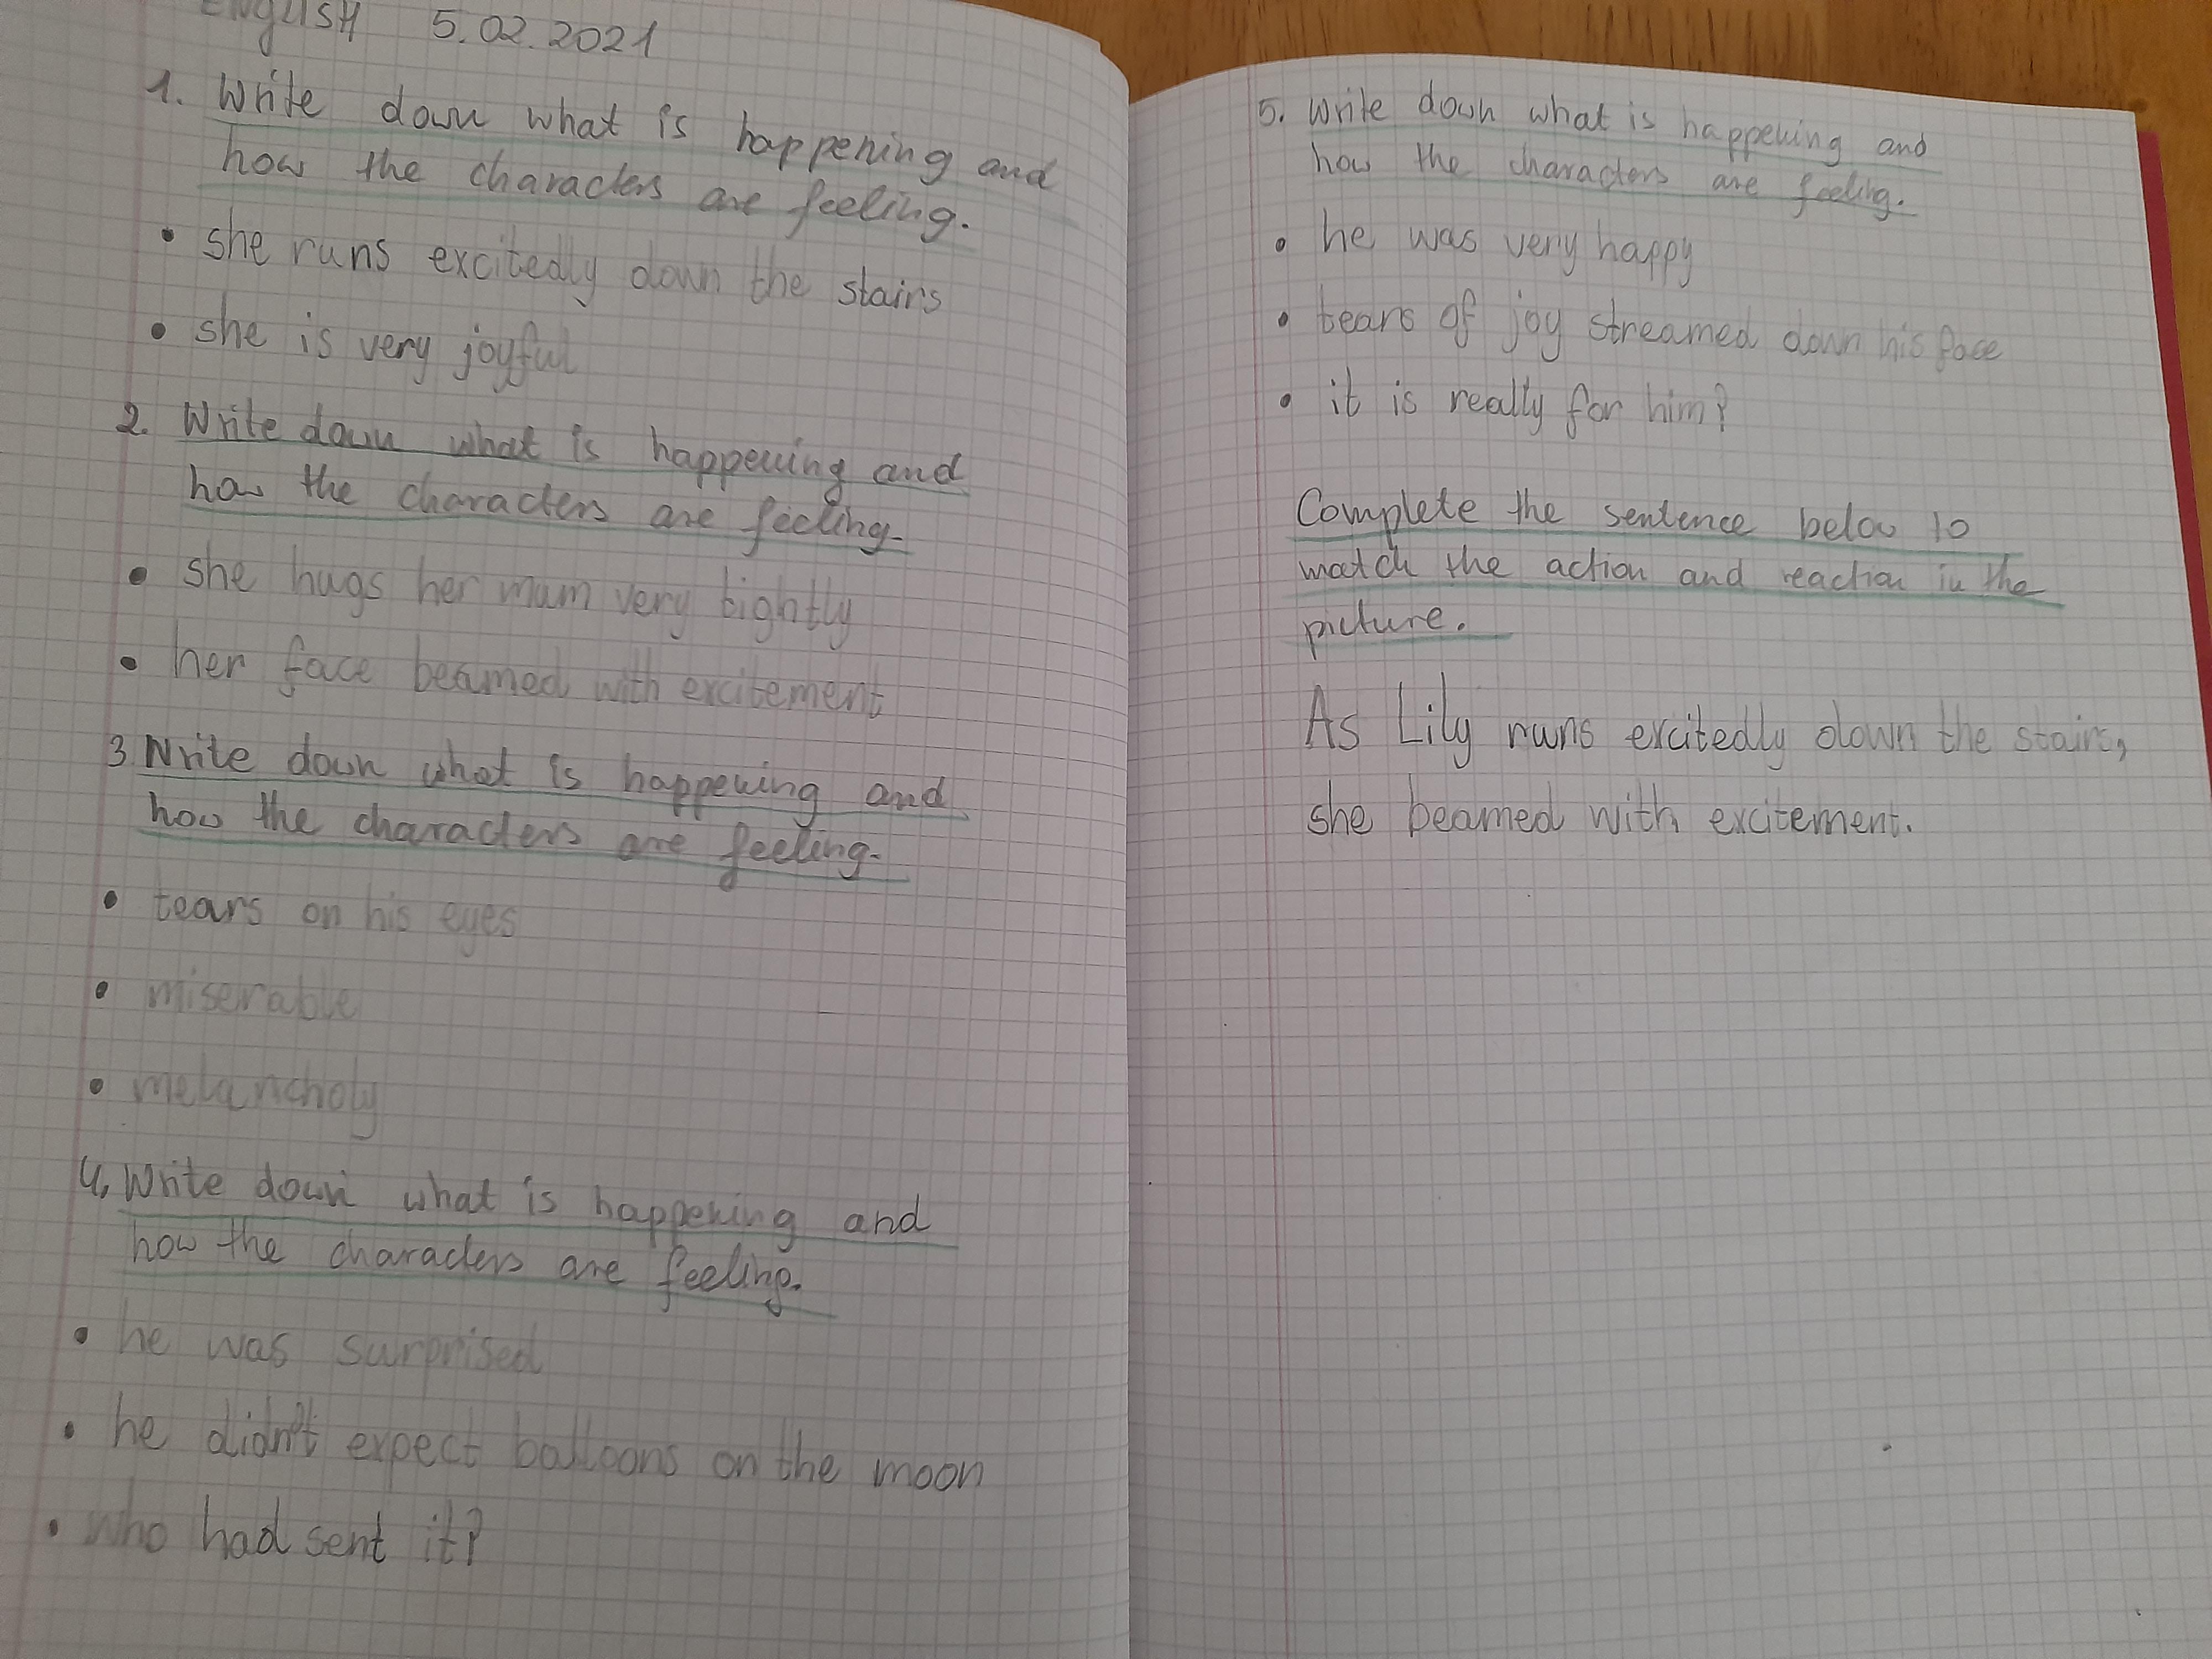 English 5.02.2021
1. Write down what is happening and
how the characters are feeling.
• she runs excitedly down the stairs
• she is very joyful
2. Write down what is happening and
how the characters are feeling.
• she hugs her mum very tightly
• her face beamed with excitement
3 Write down what is happening and
how the characters are feeling.
• tears on his eyes
• miserable
• melancholy
4. Write down what is happening and
how the characters are feeling.
• he was surprised
• he didn't expect balloons on the moon
• who had sent it?
5. Write down what is happening and
how the characters are feeling.
• he was very happy
• tears of joy streamed down his face
• it is really for him?
Complete the sentence below to
match the action and reaction in the
picture.
As Lily runs excitedly down the stairs,
she beamed with excitement.